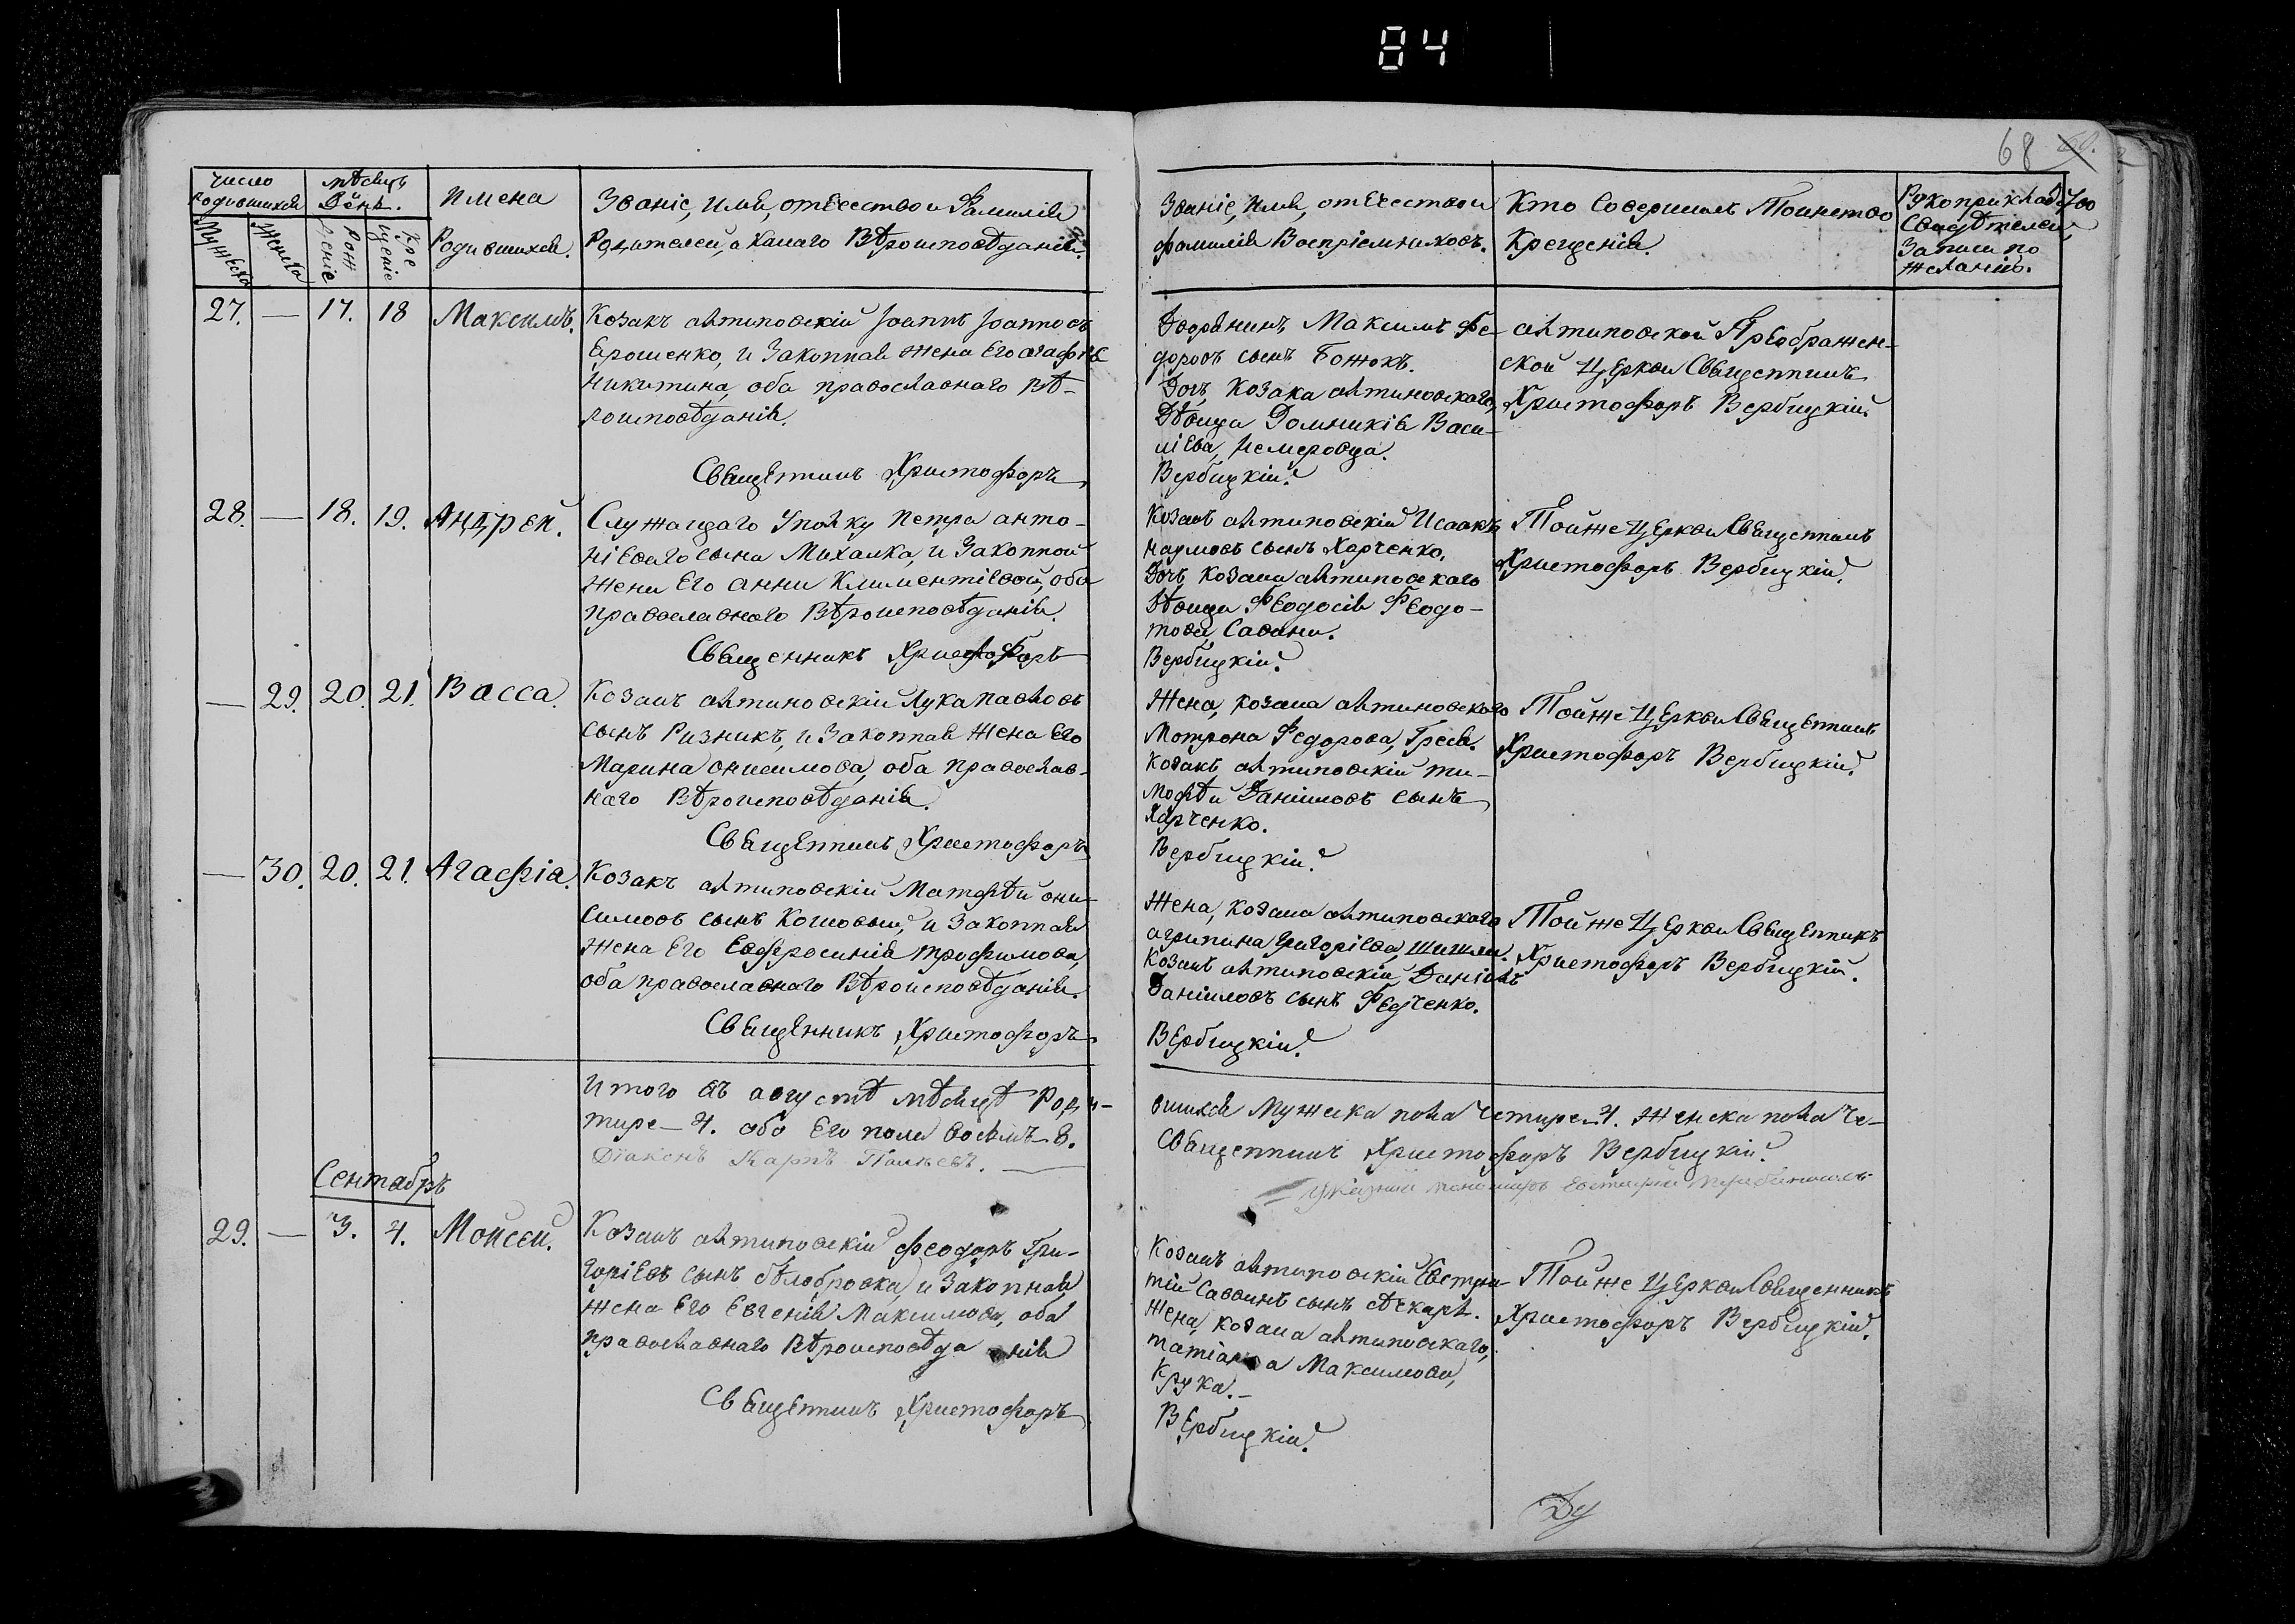 84
68
Число родившихся
Мужеска
Женска
Мѣсяцъ
День.
Рож
деніе
Кре
щеніе
Имена
Родившихся.
Званіе, имя, отечество и Фамилія
Родителей, и какаго Вѣроисповѣданія.
Званіе, имя, отечество и
фамилія Воспріемниковъ.
Кто Совершилъ Тоинство
Крещенія.
Рукоприкладство
Свидѣтелей
Записи по
желанію.
27. — 17. 18 Максимъ.
Козакъ антиповскій Іоаннъ Іоанновъ
Ерошенко, и Законная жена Его Агафія
Никитина, оба православнаго Вѣ-
роисповѣданія.
Священникъ Христофоръ
Дворянинъ Максимъ Фе-
доровъ сынъ Божокъ.
Дочь, Козака антиповскаго,
Дѣвица Домникія Васи-
ліева, Немеровца.
Вербицкій.
антиповской Преображен-
ской Церкви Священникъ
Христофоръ Вербицкій.
28. — 18. 19. Андрей.
Служащаго Уполку Петра анто-
ніеваго сына Михалка, и Законной
жени Его анни Климентіевой, оба
православнаго Вѣроисповѣданія.
Священникъ Христофоръ
Козакъ антиповскій Исаакъ
Наумовъ сынъ Харченко,
Дочь Козака антиповскаго
Дѣвица Феодосія Феодо-
това, Савини.
Вербицкій.
Тойже Церкви Священникъ
Христофоръ Вербицкій.
— 29. 20. 21. Васса.
Козакъ антиповскій Лука Павловъ
сынъ Ризникъ, и Законная жена Его
Марина онисимова, оба православ-
наго Вѣроисповѣданія.
Священникъ Христофоръ
Жена, козака антиповскаго
Мотрона Федорова,
Козакъ антиповскій ти-
мофѣй Даніиловъ сынъ
Харченко.
Вербицкій.
Тойже Церкви Священникъ
Христофоръ Вербицкій.
— 30. 20. 21. Агафіа.
Козакъ антиповскій Матфѣй они-
симовъ сынъ Кошовый, и Законная
жена Его Евфросинія трофимова,
оба православнаго Вѣроисповѣданія.
Священникъ Христофоръ
Жена, козака антиповскаго
агрипина Григоріева,
Козакъ антиповскій Даніилъ
Даніиловъ сынъ Федченко.
Вербицкій.
Тойже Церкви Священникъ
Христофоръ Вербицкій.
Итого въ августѣ мѣсяцѣ Роди-
вшихся Мужеска пола Четире—4. Женска пола Че-
тире—4. обо Его пола восѣмъ 8.
Священникъ Христофоръ Вербицкій.
Діаконъ Карпъ
Сентябръ
29. — 3. 4. Мойсей.
Козакъ антиповскій Феодоръ Гри-
горіевъ сынъ бѣлобровка, и Законная
жена Его Евгенія Максимова, оба
православнаго Вѣроисповѣданія
Священникъ Христофоръ
Козакъ антиповскій
Саввинъ сынъ
Жена, козака антиповскаго,
татіана Максимова,
Крука.—
Вербицкій.
Тойже Церкви Священникъ
Христофоръ Вербицкій.